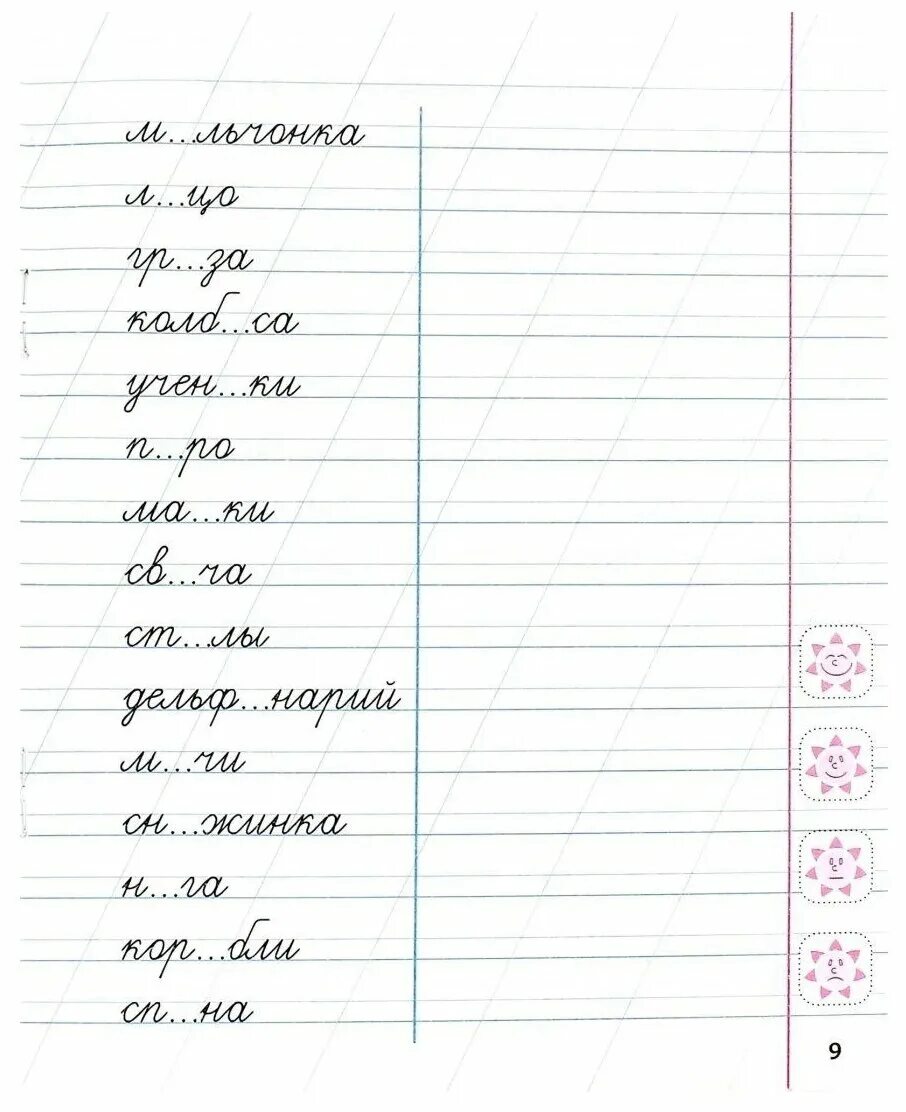 м...льчонка
л...цо
гр...за
колб...са
учен...ки
п...ро
ма...ки
св...ча
ст...лы
дельф...нарий
м...чи
сн...жинка
н...га
кор...бли
сп...на
9